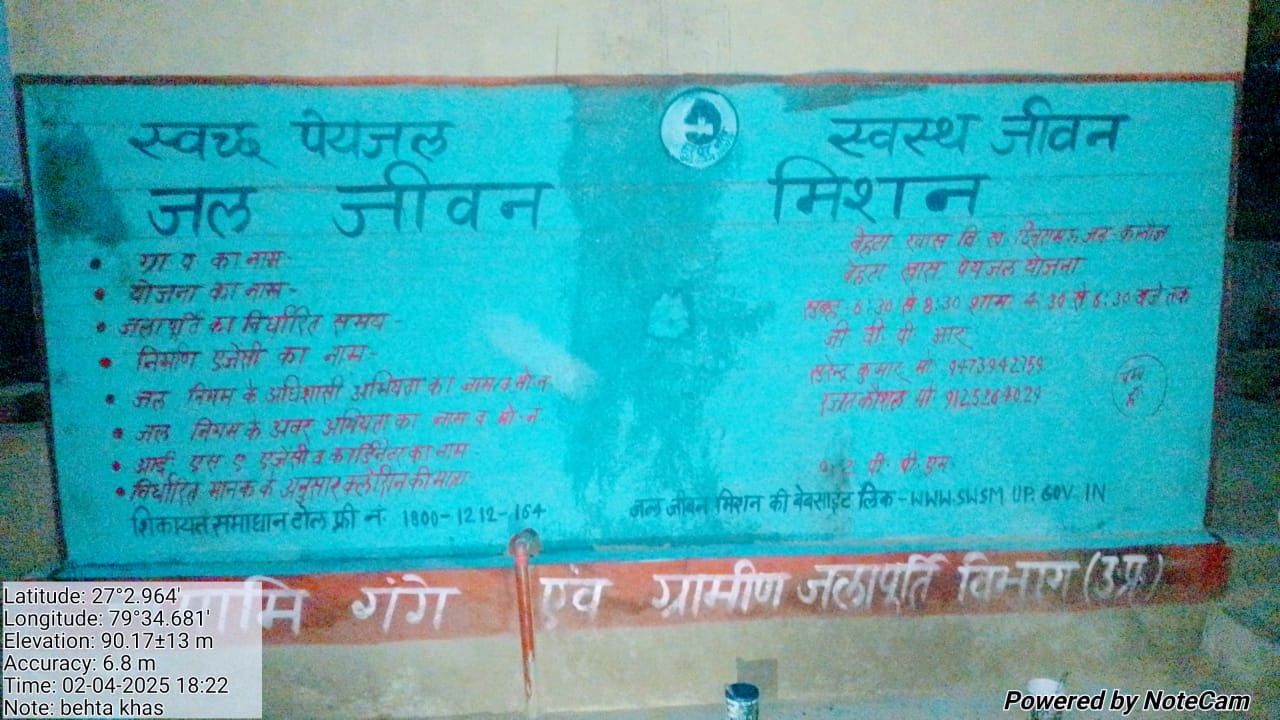 स्वच्छ पेयजल स्वस्थ जीवन
जल जीवन मिशन
• ग्रा प का नाम- बेहटा खास वि ख
• योजना का नाम- बेहटा खास पेयजल योजना
• जलापूर्ति का निर्धारित समय- सुबह 6:30 से 8:30 शाम 4:30 से 6:30 बजे तक
• निर्माण एजेंसी का नाम- जी वी पी आर
• जल निगम के अधिशासी अभियंता का नाम व मो न कुमार मो
• जल निगम के अवर अभियंता का नाम व मो-न मो
• आई एस ए एजेंसी व कार्डिनेटर का नाम
• निर्धारित मानक के अनुसार क्लोरिन की मात्रा 0.2 पी पी एम
शिकायत समाधान टोल फ्री नं. 1800-1212-164 जल जीवन मिशन की वेबसाईट लिंक-WWW.SWSM UP. GOV IN
नमामि गंगे एवं ग्रामीण जलापूर्ति विभाग (उ प्र)
Latitude: 27°2.964'
Longitude: 79°34.681'
Elevation: 90.17±13 m
Accuracy: 6.8 m
Time: 02-04-2025 18:22
Note: behta khas
Powered by NoteCam